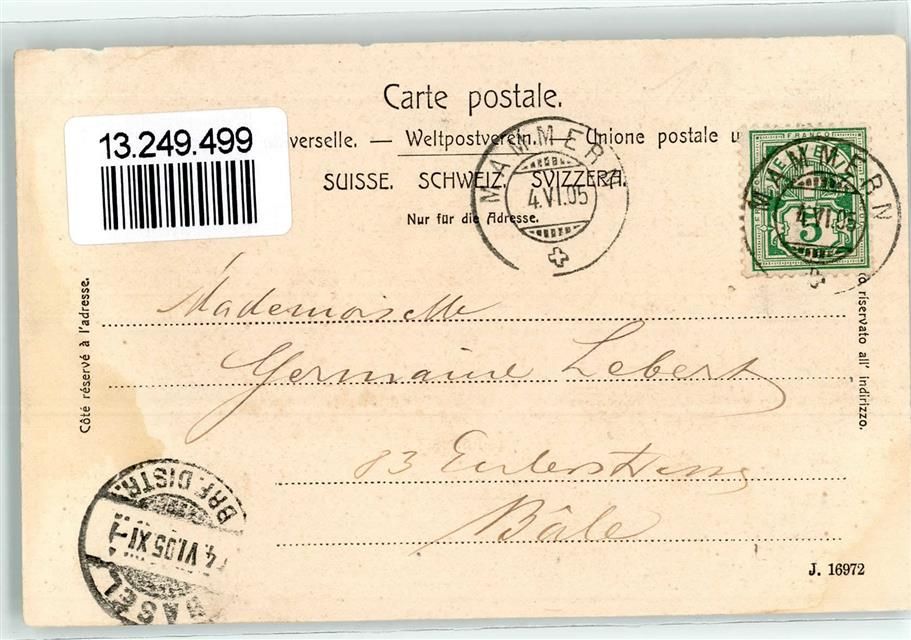 Carte postale.
13.249.499
verselle. — Weltpostverein. — Unione postale u
SUISSE. SCHWEIZ. SVIZZERA.
Nur für die Adresse.
MAMMERN
4.VI.05
FRANCO
HELVETIA
5
MAMMERN
4.VI.05
Côté réservé à l'adresse.
riservato all' indirizzo.
Mademoiselle
Germaine Lebert
83 Eulerstrasse
Bâle
BASEL
BRF. DISTR.
4.VI.05 XI-
J. 16972